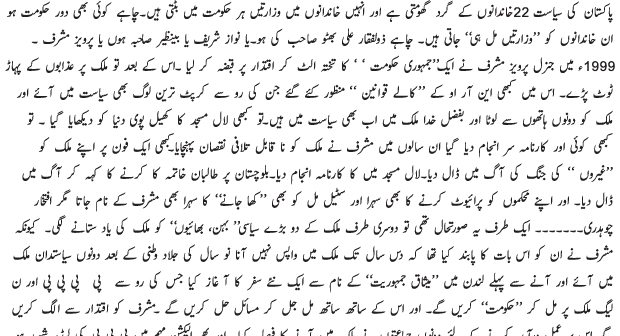 پاکستان کی سیاست 22خاندانوں کے گرد گھومتی ہے اور انہیں خاندانوں میں وزارتیں ہر حکومت میں بٹتی ہیں۔چاہے کوئی بھی دور حکومت ہو
ان خاندانوں کو ’’وزارتیں مل ہی‘‘ جاتی ہیں۔ چاہے ذولفقار علی بھٹو صاحب کی ہو۔یا نواز شریف یا بینظیر صاحبہ ہوں یا پرویز مشرف ۔
1999ء میں جنرل پرویز مشرف نے ایک’’جمہوری حکومت ‘ ‘ کا تختہ الٹ کر اقتدار پر قبضہ کر لیا ۔اس کے بعد تو ملک پر عذابوں کے پہاڑ
ٹوٹ پڑے۔ اس میں کبھی این آر او کے ’’ کالے قوانین ‘‘ منظور کئے گئے جن کی رو سے کرپٹ ترین لوگ بھی سیاست میں آئے اور
ملک کو دونوں ہاتھوں سے لوٹا اور بفضل خدا ملک میں اب بھی سیاست میں ہیں۔تو کبھی لال مسجد کا کھیل پوی دنیا کو دیکھایا گیا ۔ تو
کبھی کوئی اور کارنامہ سر انجام دیا گیا ان سالوں میں مشرف نے ملک کو نا قابل تلافی نقصان پہنچایا۔کبھی ایک فون پر اپنے ملک کو
’’غیروں ‘‘ کی جنگ کی آگ میں ڈال دیا۔لال مسجد میں کا کارنامہ انجام دیا۔بلوچستان پر طالبان خاتمہ کا کرنے کا کہہ کر آگ میں
ڈال دیا۔ اور اپنے محکموں کو پرائیوٹ کرنے کا بھی سہرا اور سٹیل مل کو بھی ’’کھا جانے‘‘ کا سہرا بھی مشرف کے نام جاتا مگر افتخار
چوہدری۔۔۔۔۔۔۔ ایک طرف یہ صورتحال تھی تو دوسری طرف ملک کے دو بڑے سیاسی’’ بہن، بھائیوں‘‘ کو ملک کی یاد ستانے لگی۔ کیونکہ
مشرف نے ان کو اس بات کا پابند کیا تھا کہ دس سال تک ملک میں واپس نہیں آنا نو سال کی جلاد وطنی کے بعد دونوں سیاستدان ملک
میں آئے اور آنے سے پہلے لندن میں ’’میثاق جمہوریت‘‘ کے نام سے ایک نئے سفر کا آغاز کیا جس کی رو سے پی پی پی پی اور ن
لیگ مل کر ملک پر ’’حکومت‘‘ کریں گے۔ اور اس کے ساتھ ساتھ مل جل کر مسائل حل کریں گے ۔مشرف کو اقتدار سے الگ کریں